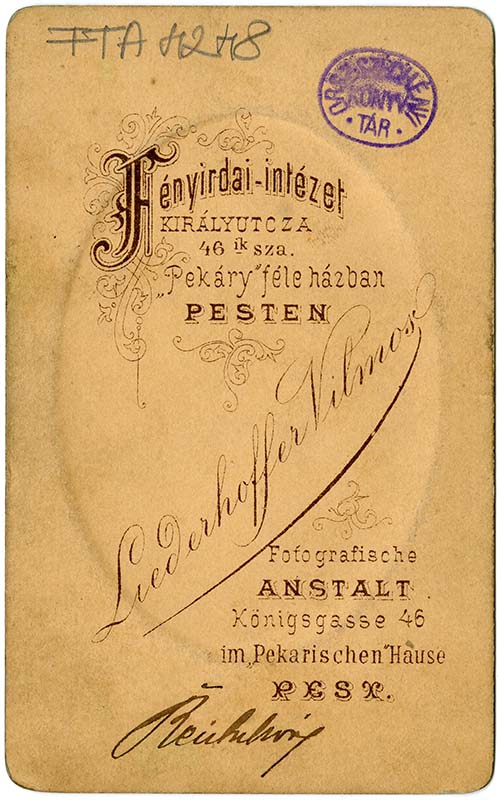 FTA 4248
ORSZ. SZÉCHÉNYI
KÖNYV
TÁR
Fényirdai-intézet
KIRÁLYUTCZA
46 ik sza.
„Pekáry" féle házban
PESTEN
Liederhoffer Vilmos
Fotografische
ANSTALT
Königsgasse 46
im „Pekarischen" Hause
PEST.